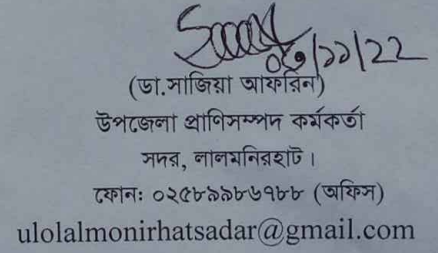 ০৭/১১/২২
(ডা.সাজিয়া আফরিন)
উপজেলা প্রাণিসম্পদ কর্মকর্তা
সদর, লালমনিরহাট।
ফোনঃ ০২৫৮৯৯৮৬৭৮৮ (অফিস)
ulolalmonirhatsadar@gmail.com